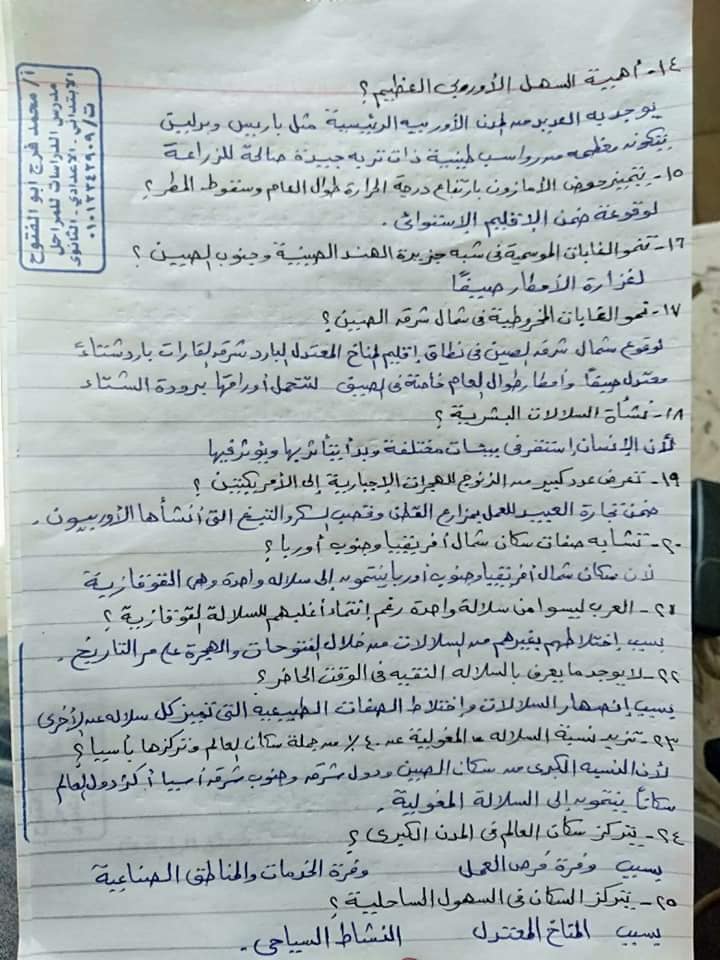 ١٤- أهمية السهل الأوروبي العظيم ؟
يوجد به العديد من المدن الأوربيه الرئيسية مثل باريس وبرلين
يتكون معظمه من رواسب طينية ذات تربه جيدة صالحة للزراعة
١٥- يتميز حوض الأمازون بارتفاع درجة الحرارة طوال العام وسقوط المطر ؟
لوقوعة ضمن الإقليم الإستوائى .
١٦- تنمو الغابات الموسمية فى شبه جزيرة الهند الصينية وجنوب الصين ؟
لغزارة الأمطار صيفًا
١٧- نمو الغابات المخروطية فى شمال شرق الصين ؟
لوقوع شمال شرق الصين فى نطاق إقليم المناخ المعتدل البارد شرق القارات بارد شتاءً
معتدل صيفًا وأمطار طوال العام خاصة فى الصيف لتتحمل أوراقها برودة الشتاء
١٨- نشأة السلالات البشرية ؟
لأن الإنسان إستقر فى بيئات مختلفة وبدأ يتأثر بها ويؤثر فيها
١٩- تعرض عدد كبير من الزنوج للهجرات الإجبارية إلى الأمريكيتين ؟
ضمن تجارة العبيد للعمل بمزارع القطن وقصب السكر والتبغ التى أنشأها الأوربيون .
٢٠- تتشابه صفات سكان شمال أفريقيا وجنوب أوربا ؟
لأن سكان شمال أفريقيا وجنوب أوربا ينتمون إلى سلاله واحدة وهى القوقازية
٢١- العرب ليسوا من سلالة واحدة رغم إنتماء أغلبهم للسلالة القوقازية ؟
بسبب إختلاطهم بغيرهم من السلالات من خلال الفتوحات والهجرة على مر التاريخ .
٢٢- لا يوجد ما يعرف بالسلاله النقيه فى الوقت الحاضر ؟
بسبب إنصهار السلالات وإختلاط الصفات الطبيعيه التى تميز كل سلاله عن الأخرى
٢٣- تزيد نسبة السلاله المغولية عن ٤٠٪ من جملة سكان العالم وتركزها بأسيا ؟
لأن النسبه الكبرى من سكان الصين ودول شرق وجنوب شرق أسيا أكثر دول العالم
سكاناً ينتمون إلى السلالة المغولية .
٢٤- يتركز سكان العالم فى المدن الكبرى ؟
بسبب وفرة فرص العمل وفرة الخدمات والمناطق الصناعية
٢٥- يتركز السكان فى السهول الساحلية ؟
بسبب المناخ المعتدل النشاط السياحى .
أ/ محمد فرج ابو الفتوح
مدرس الدراسات للمراحل
الابتدائى - الاعدادى - الثانوى